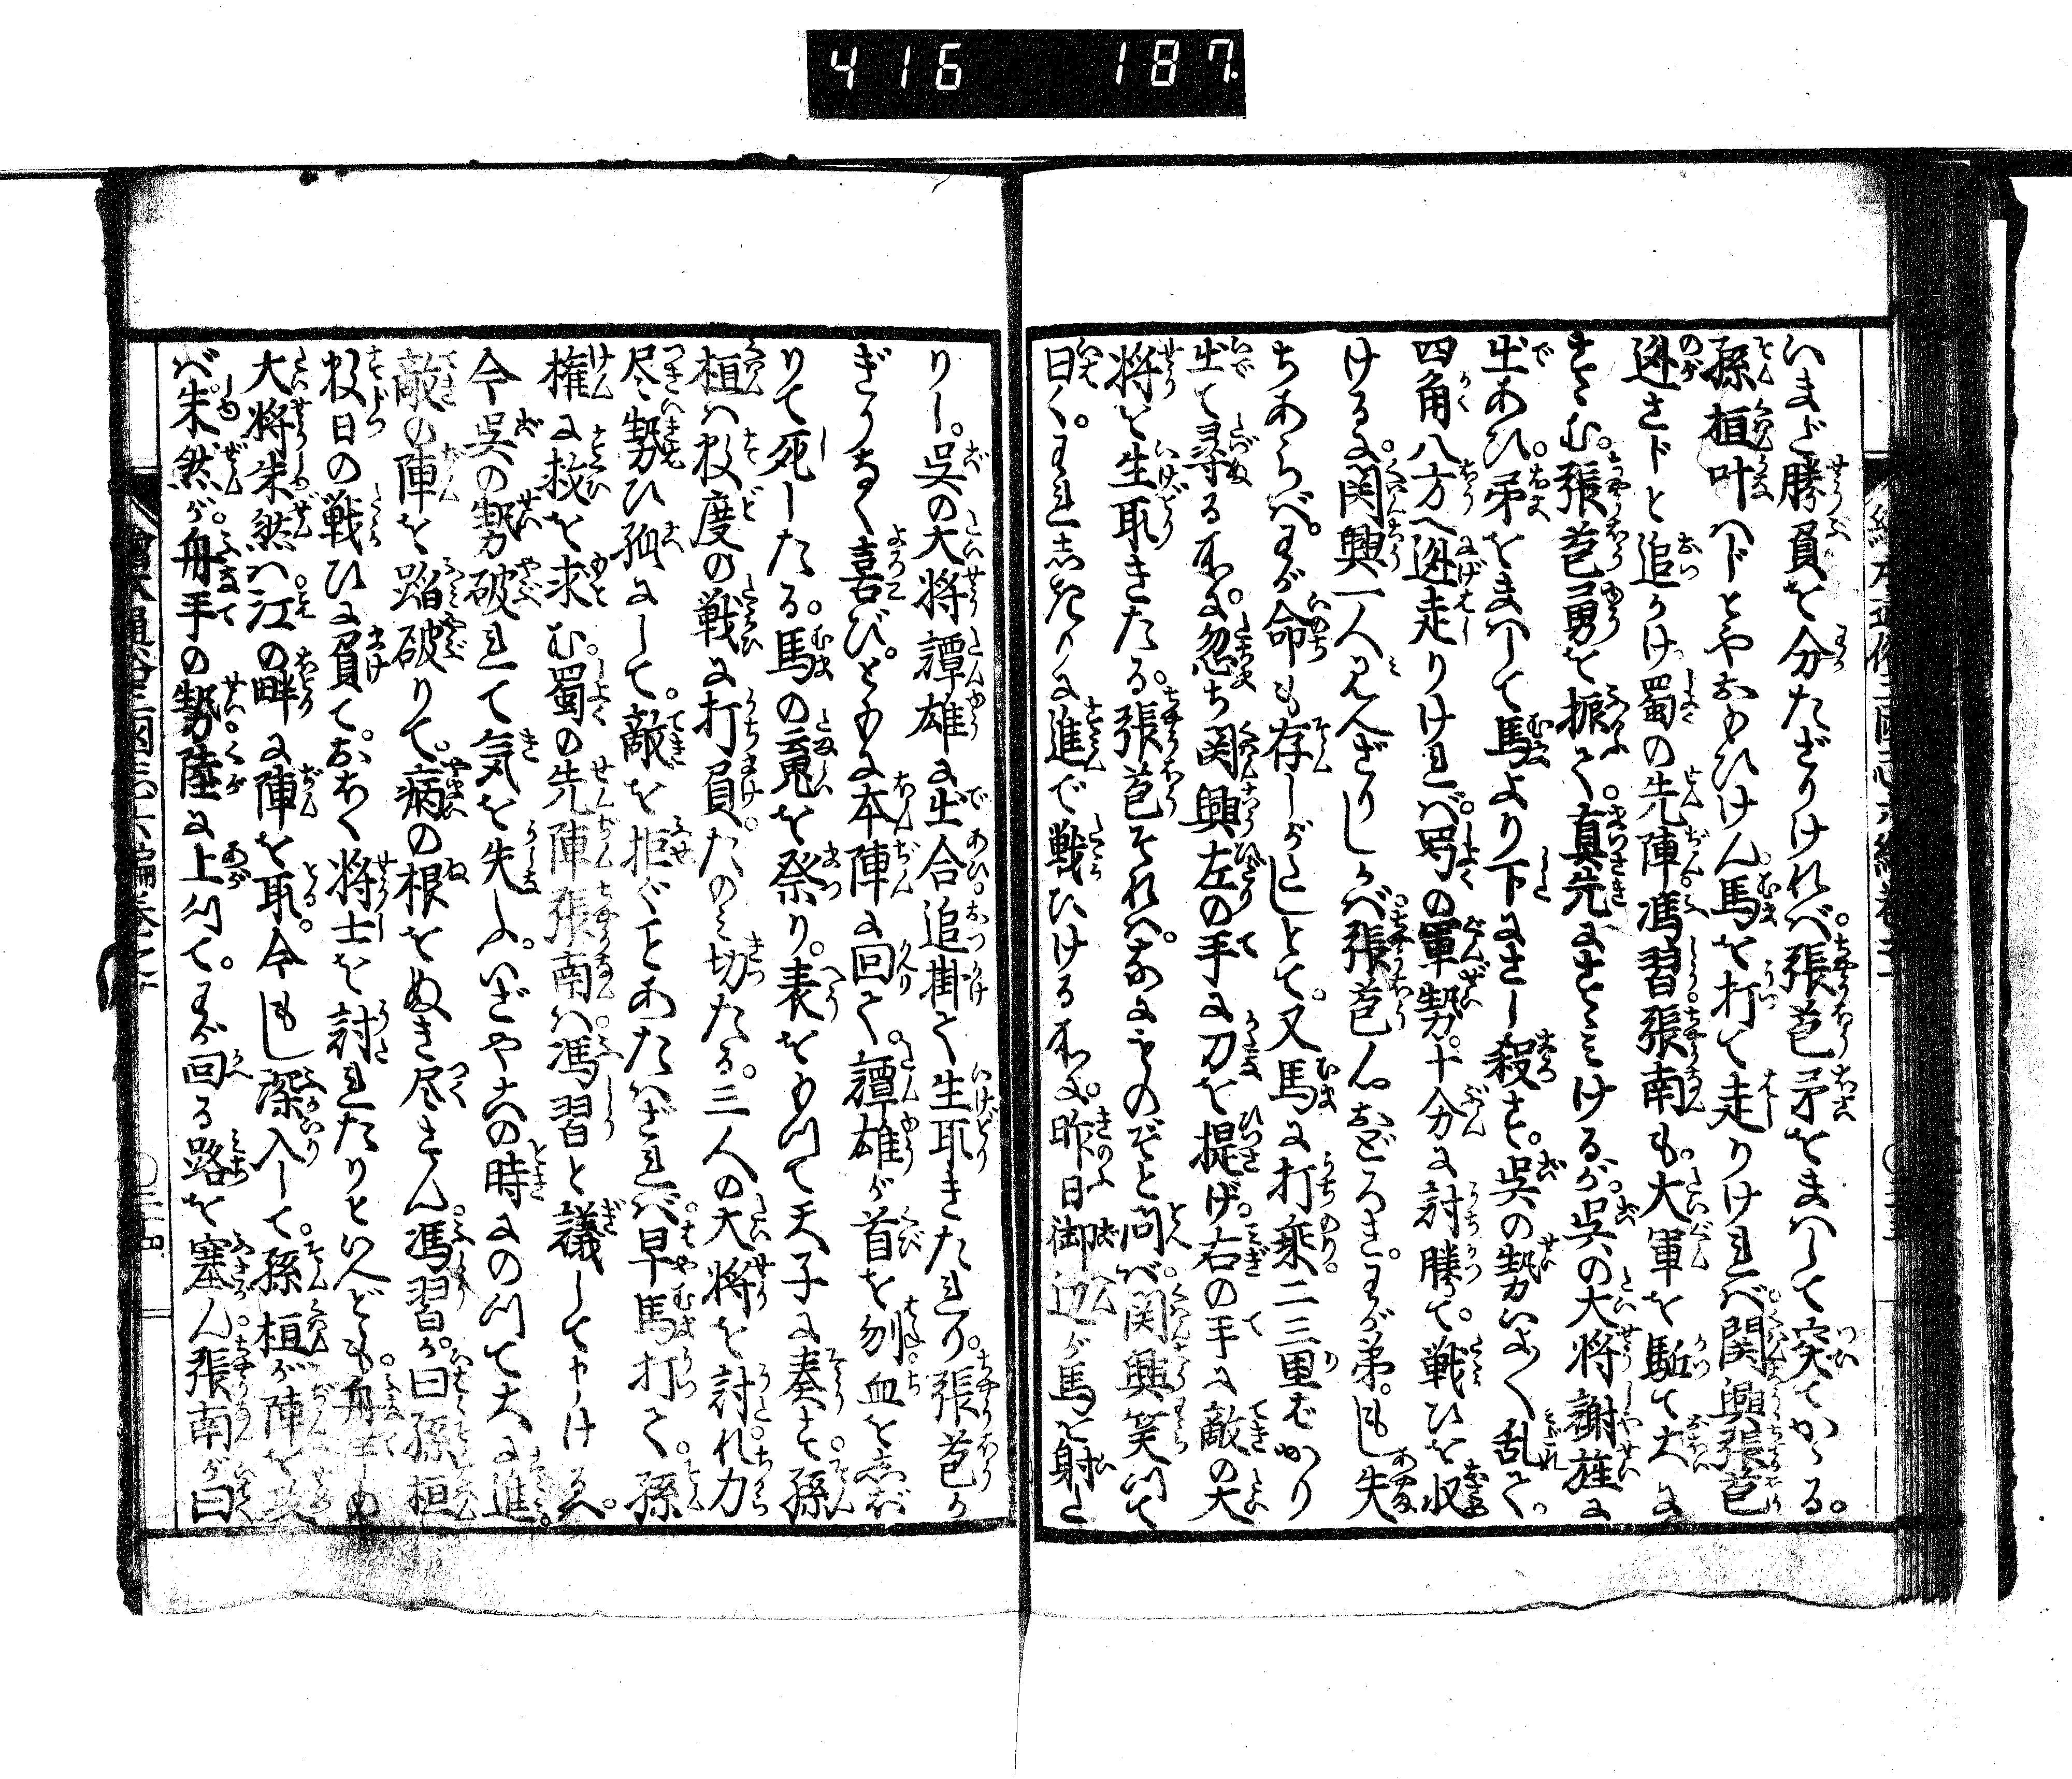 416 187
いまだ勝負を分たざりければ。張苞矛をまはして突てかゝる。
孫桓叶ハじとやおもひけん。馬を打て走りければ。関興張苞
逃さじと追かけ蜀の先陣。馮習。張南も。大軍を駈て大に
すゝむ。張苞勇を振て。真先にすゝみけるが。呉の大将謝旌に
出あひ。矛をまはして馬より下にさし殺す。呉の勢いよ〱乱て。
四角八方へ逃走りければ。蜀の軍勢。十分に討勝て。戦ひを収
けるに。関興一人見えざりしかば。張苞心おどろき。わが弟。もし失
ちあらば。わが命も存しがたしとて。又馬に打乗。二三里ばかり
出て尋る所に。忽ち関興左の手に刀を提げ。右の手に敵の大
将を生取きたる。張苞それハ。なにものぞと問ば。関興笑つて
曰く。われ志きりに進で戦ひける所に。昨日御辺が馬を射た
りし。呉の大将譚雄に出合。追掛て生取きたれり。張苞か
ぎりなく喜び。ともに本陣に回て。譚雄が首を刎。血を志ぼ
りて死したる。馬の霊を祭り。表をもつて天子に奏す。孫
桓ハ数度の戦に打負。たのミ切たる。三人の大将を討れ力
尽勢ひ孤にして。敵を拒ぐことあたはざれば。早馬打て。孫
権に救を求む。蜀の先陣張南ハ。馮習と議して申けるハ。
今呉の勢破れて気を失ふ。いざや此の時にのつて大に進。
敵の陣を踏破りて。病の根をぬき尽さん。馮習が曰孫桓
数日の戦ひに負て。おほく将士を討れたりといへども。舟手の
大将朱然ハ。江の畔に陣を取。今もし深入して。孫桓が陣を攻
ば。朱然が。舟手の勢。陸に上つて。わが回る路を塞ん。張南が曰